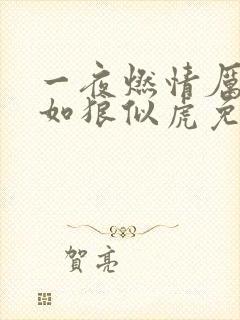 一夜燃情厲
如狼似虎免
賀亮